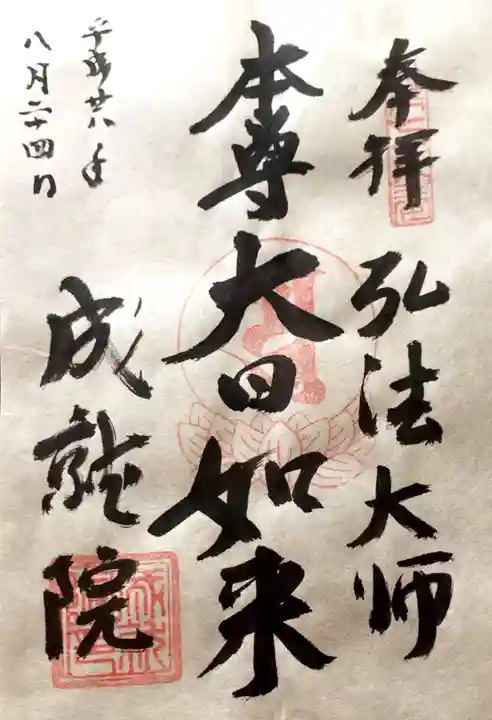 奉拝 弘法大师
本尊大日如来
成就院
平成廿八年
八月二十四日